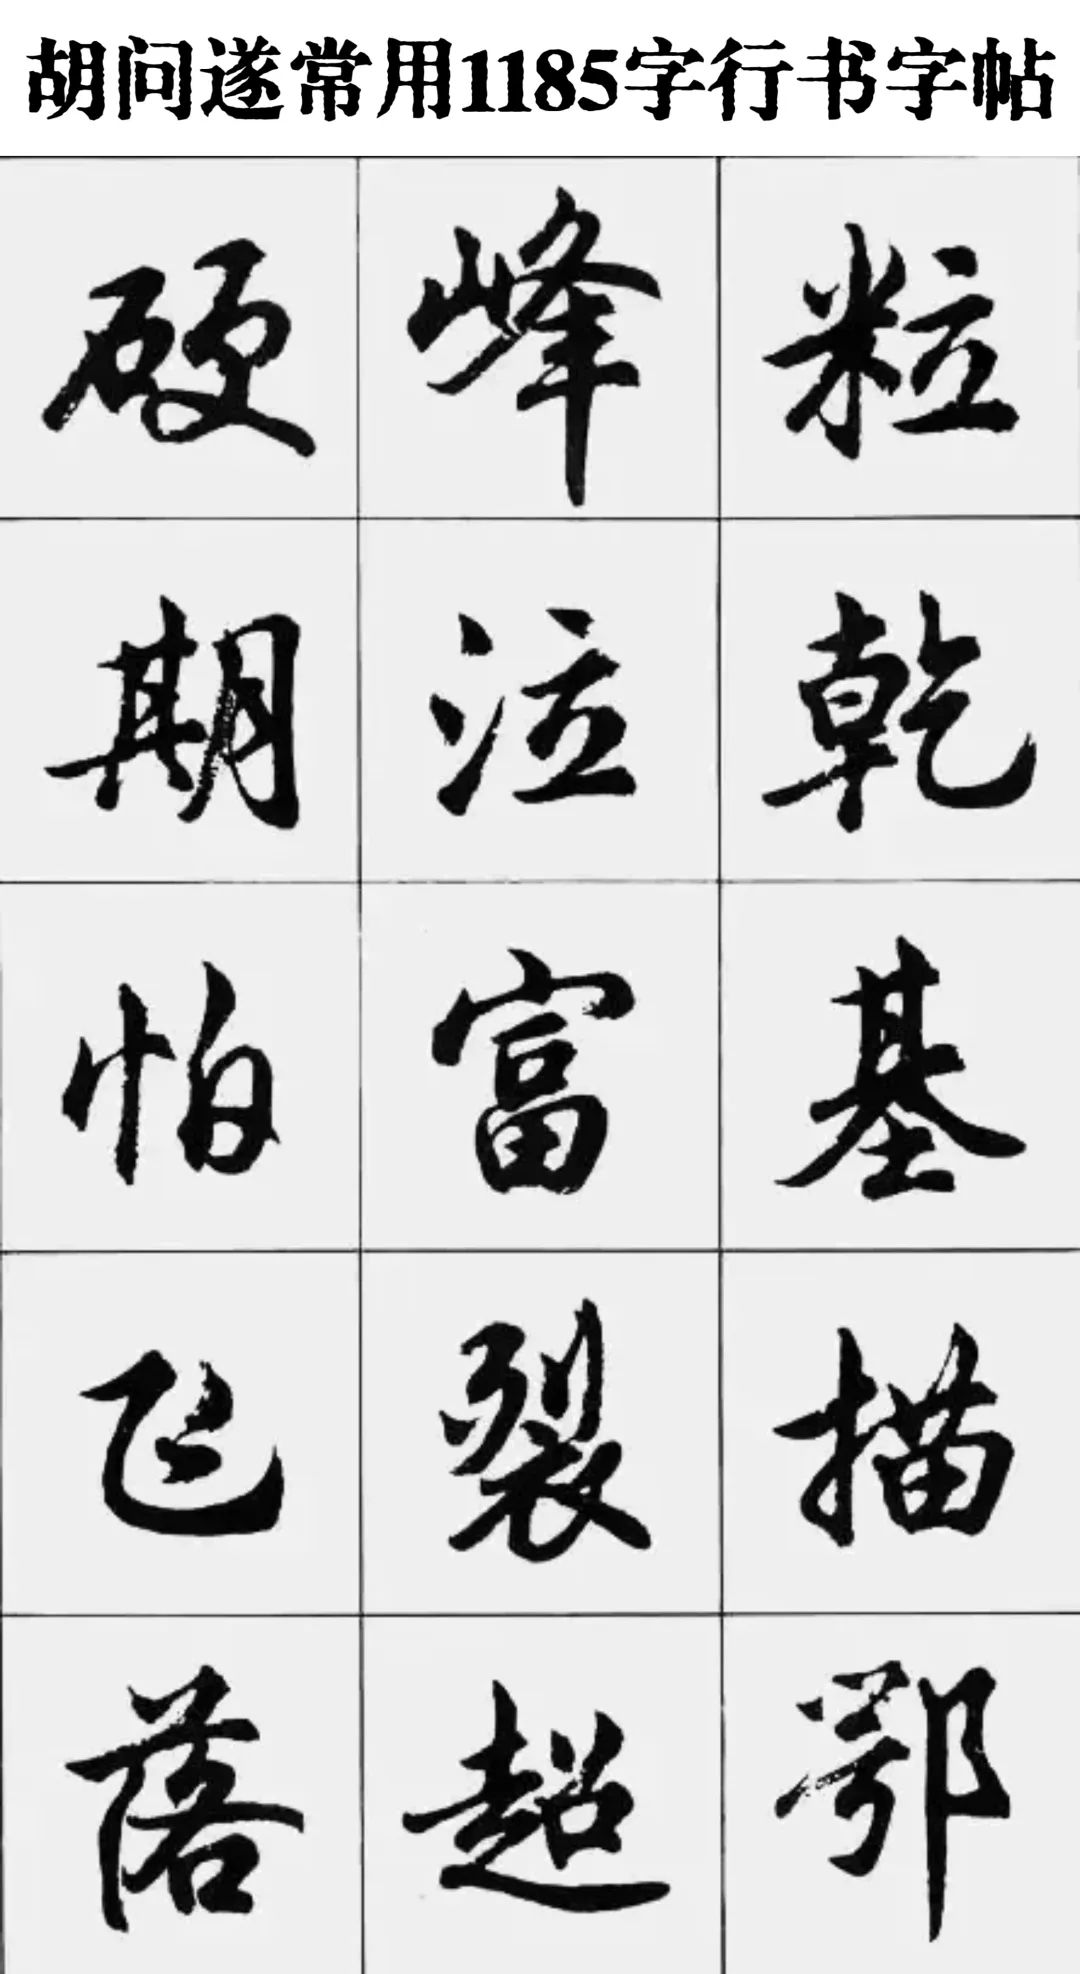 胡问遂常用1185字行书字帖
硬峰粒
期泣乾
怕富基
飞裂描
落超鄂